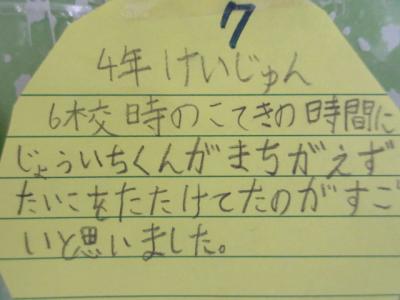 7
4年けいじゅん
6校時のこてきの時間に
じょういちくんがまちがえず
たいこをたたけてたのがすご
いと思いました。